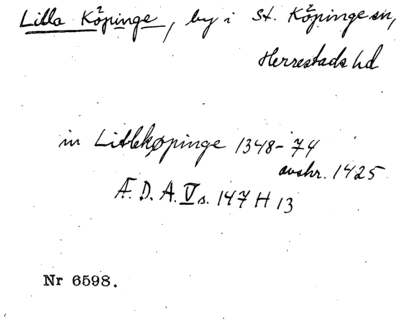 Lilla Köpinge, by i St. Köpinge sn,
Herrestads hd
in Litlekøpinge 1348-74
avskr. 1425
Æ. D. A. V s. 147 H 13
Nr 6598.